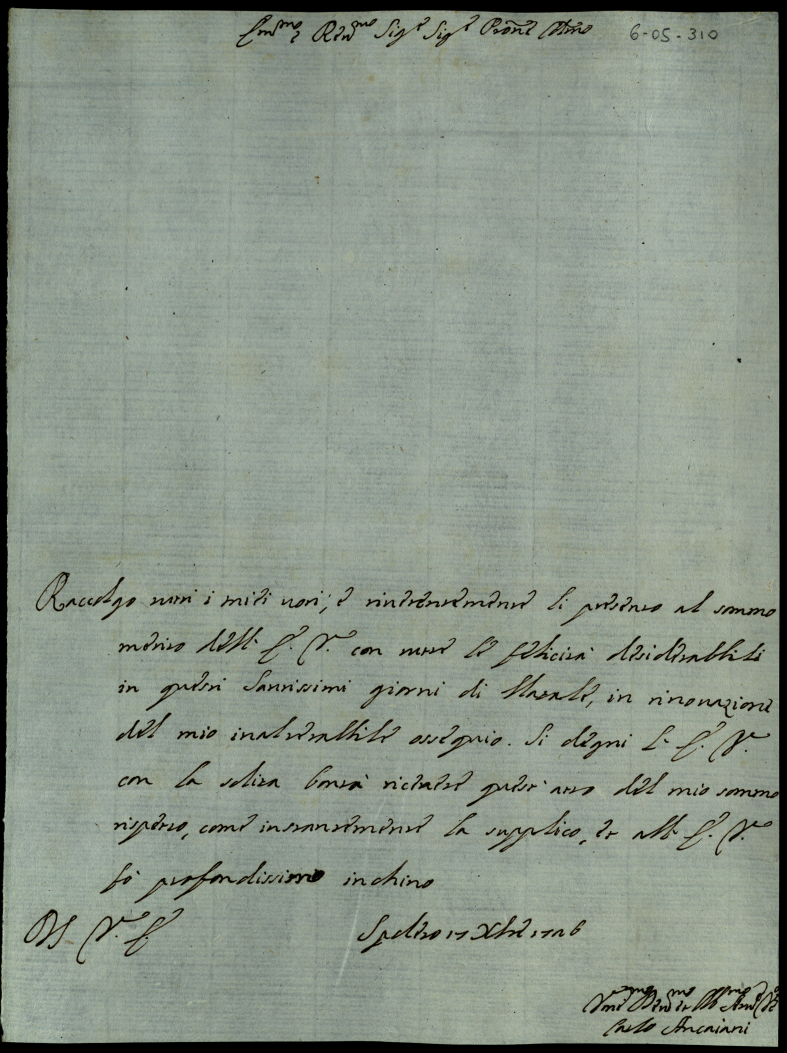 Em.mo e Rev.mo Sig.e Sig.e Prone Col.mo
6-05-310
Raccolgo tutti i miei voti, e riverentemente li presento al sommo
merito dell' E. V. con tutte le felicità desiderabbili
in questi Santissimi giorni di Natale, in rinovazione
del mio inalterabbile ossequio. Si degni l' E. V.
con la solita bontà ricevere quest' atto del mio sommo
rispetto, come instantemente la supplico, et all' E. V.
fò profondissimo inchino
Di V. E. Spoleto 17 Xbre 1726
Um.mo Dev.mo et Obl.mo Ser.
Carlo Ancaiani